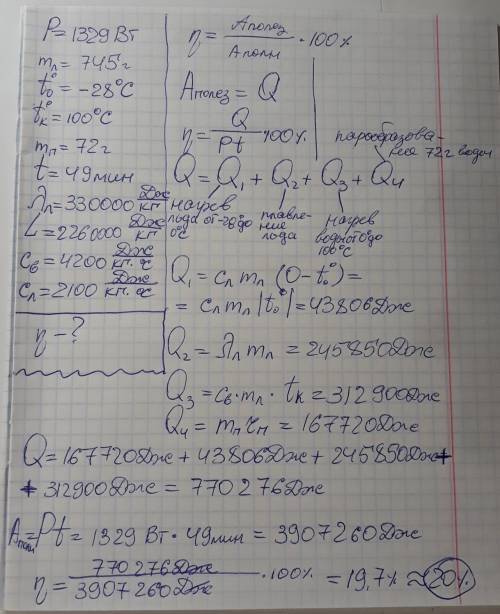 P = 1329 Вт
mл = 745 г
t₀° = -28°C
tк° = 100°C
mп = 72 г
t = 49 мин
λл = 330000 Дж/кг
L = 2260000 Дж/кг
cв = 4200 Дж/кг·°C
cл = 2100 Дж/кг·°C
η - ?
η = Aполез/Aполн · 100%
Aполез = Q
η = Q/Pt · 100%
парообразова-
ние 72 г воды
Q = Q₁ + Q₂ + Q₃ + Q₄
нагрев
льда от -28 до
0°C
плавле-
ние
льда
нагрев
воды от 0 до
100°C
Q₁ = cл mл (0 - t₀°) =
= cл mл |t₀°| = 43806 Дж
Q₂ = λл mл = 245850 Дж
Q₃ = cв · mл · tк = 312900 Дж
Q₄ = mп rп = 167720 Дж
Q = 167720 Дж + 43806 Дж + 245850 Дж +
+ 312900 Дж = 770276 Дж
Aполн = Pt = 1329 Вт · 49 мин = 3907260 Дж
η = 770276 Дж/3907260 Дж · 100% = 19,7% ≈ 20%